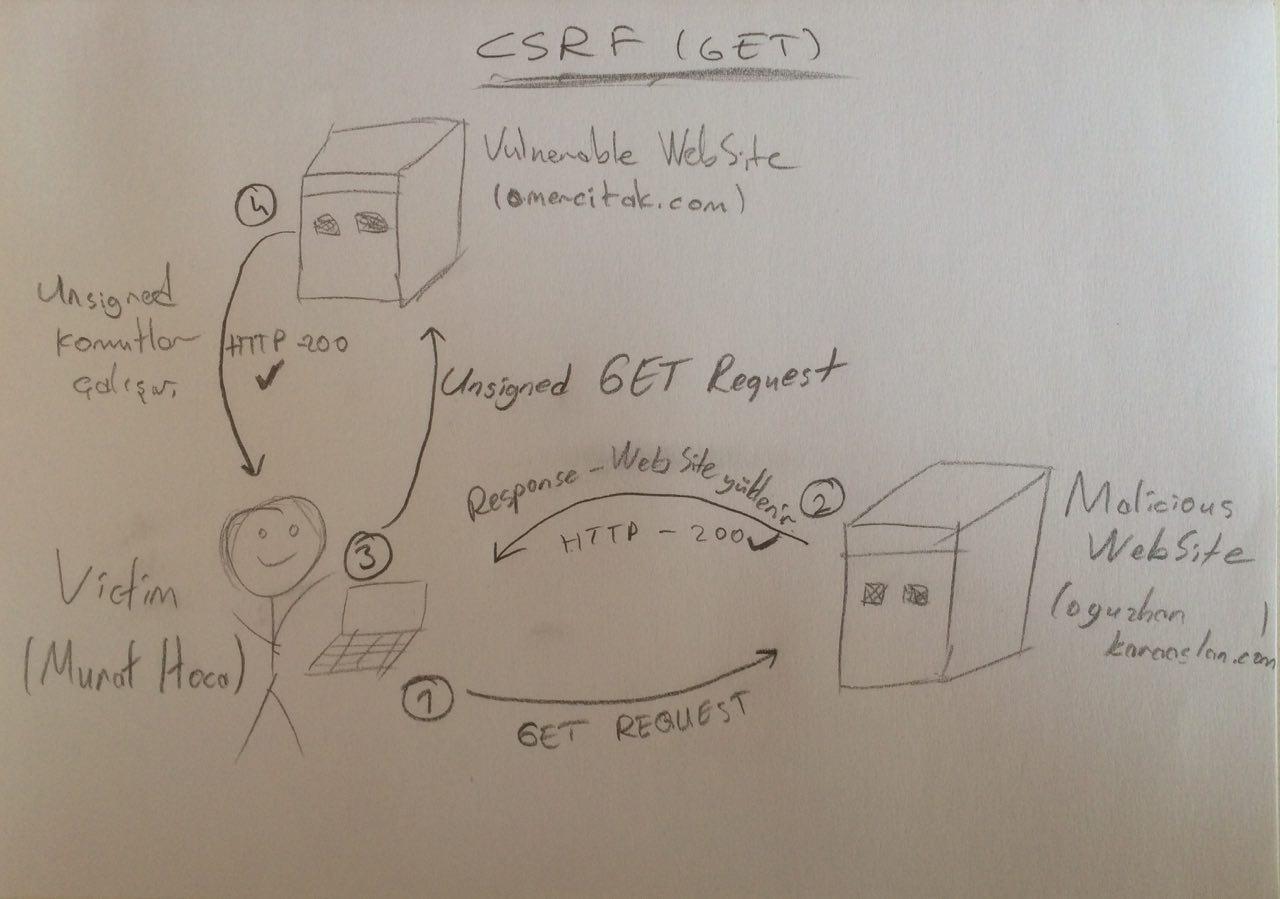 CSRF (GET)
Vulnerable WebSite
(omercitak.com)
4
Unsigned
Komutlar
Çalışır.
HTTP-200
Unsigned GET Request
Response - WebSite yüklenir.
HTTP - 200
2
Malicious
WebSite
(oguzhan
karaaslan.com)
3
Victim
(Murat Hoca)
1
GET REQUEST